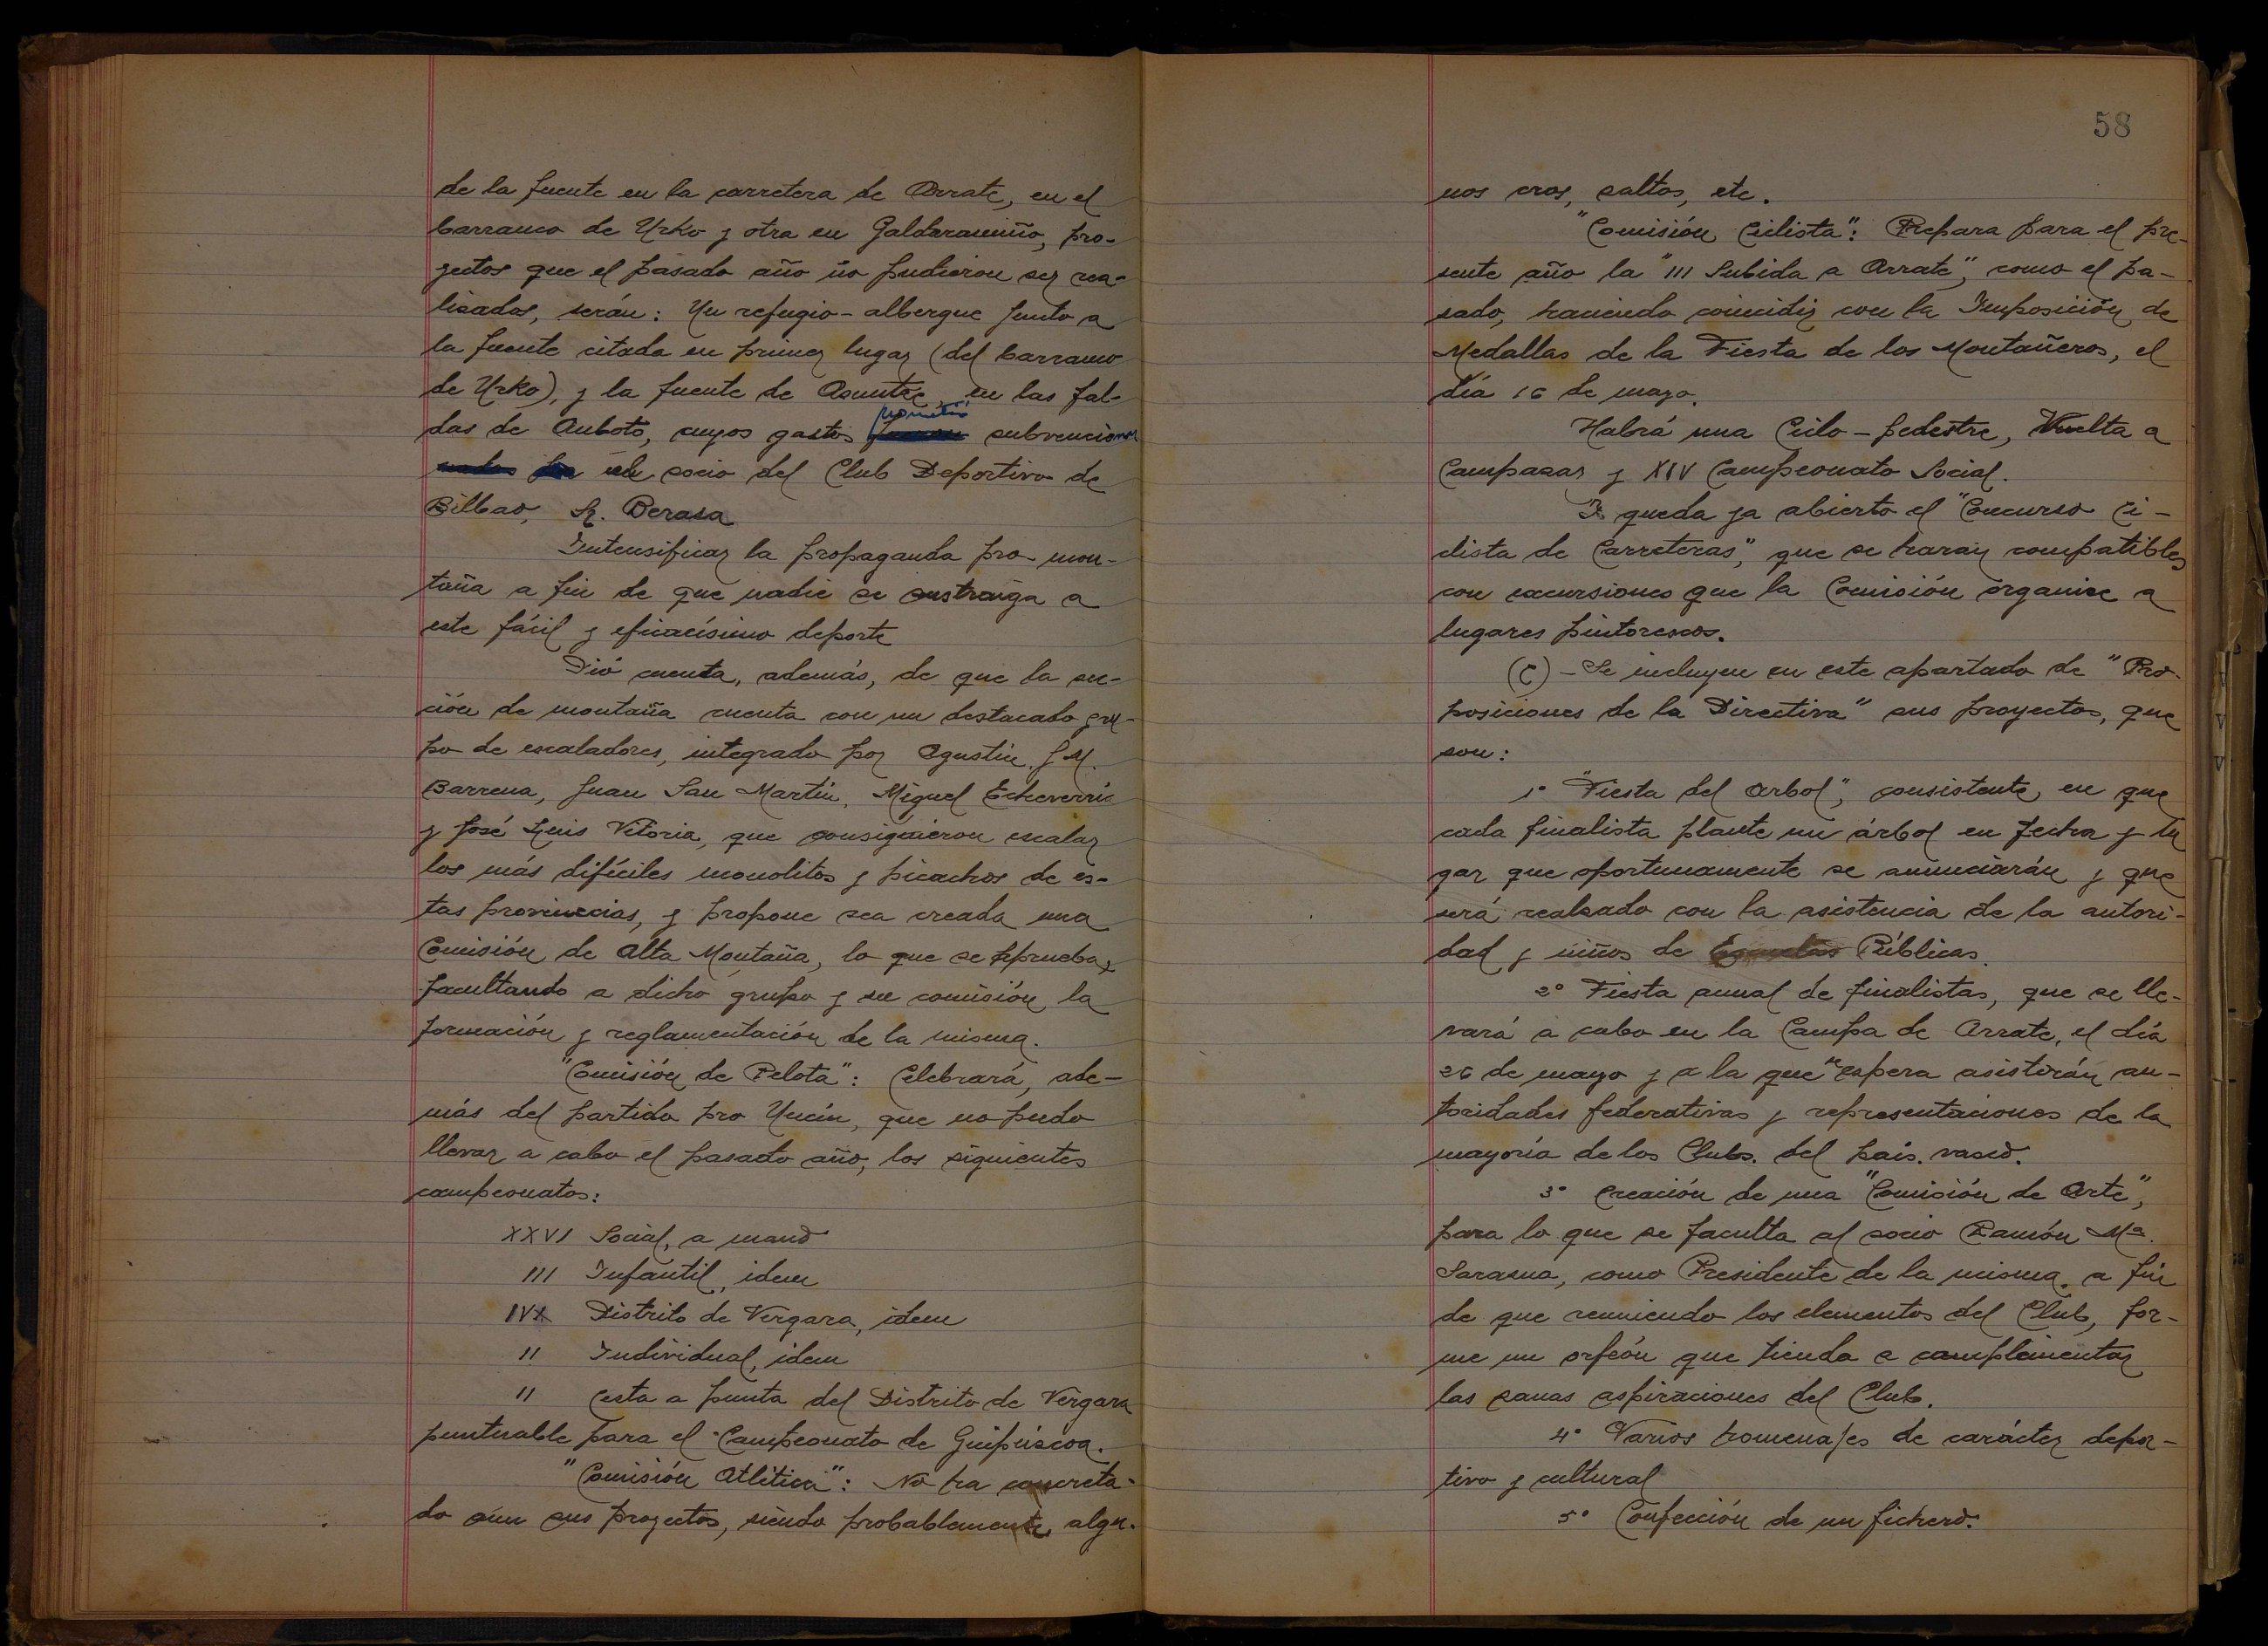 de la fuente en la carretera de Arrate, en el
barranco de Urko y otra en Galdaramiño, pro-
yectos que el pasado año no pudieron ser rea-
lisados, serán: Un refugio-albergue junto a
la fuente citada en primer lugar (del barranco
de Urko), y la fuente de Asuntze, en las fal-
das de Anboto, cuyos gastos prometió subvencionar
el socio del Club Deportivo de
Bilbao, Sr. Derasa
Intensificar la propaganda pro-mon-
taña a fin de que nadie se sustraiga a
este fácil y eficacísimo deporte
Dió cuenta, además, de que la sec-
ción de montaña cuenta con un destacado gru-
po de escaladores, integrado por Agustin, J M.
Barrena, Juan San Martín, Miguel Echeverría
y José Luis Vitoria, que consiguieron escalar
los más difíciles monolitos y picachos de es-
tas provincias, y propone sea creada una
Comisión de Alta Montaña, lo que se aprueba,
facultando a dicho grupo y su comisión la
formación y reglamentación de la misma.
"Comisión de Pelota": Celebrará, ade-
más del partido pro Yucín, que no pudo
llevar a cabo el pasado año, los siguientes
campeonatos:
XXVI Social, a mano
III Infantil, idem
IVX Distrito de Vergara, idem
II Individual, idem
II Cesta a punta del Distrito de Vergara
puntuable para el Campeonato de Guipúscoa.
"Comisión Atlética": No ha concreta-
do aún sus proyectos, siendo probablemente algu-
58
nos cros, saltos, etc.
"Comisión Ciclista": Prepara para el pre-
sente año la "III Subida a Arrate", como el pa-
sado, haciendo coincidir con la Imposición de
Medallas de la Fiesta de los Montañeros, el
día 16 de mayo.
Habrá una Ciclo-pedestre, Vuelta a
Campazar y XIV Campeonato Social.
Y queda ya abierto el "Concurso Ci-
clista de Carreteras", que se harán compatibles
con excursiones que la Comisión organice a
lugares pintorescos.
(C) - Se incluyen en este apartado de "Pro-
posiciones de la Directiva" sus proyectos, que
son:
1º "Fiesta del arbol", consistente, en que
cada finalista plante un árbol en fecha y lu
gar que oportunamente se anunciarán y que
será realzado con la asistencia de la autori-
dad y niños de Escuelas Públicas.
2º Fiesta anual de finalistas, que se lle-
vará a cabo en la Campa de Arrate, el día
26 de mayo y a la que se espera asistirán au-
toridades federativas y representaciones de la
mayoría de los Clubs. del país. vasco.
3º Creación de una "Comisión de Arte",
para lo que se faculta al socio Ramón Mª.
Sarasua, como Presidente de la misma, a fin
de que reuniendo los elementos del Club, for-
me un orfeón que tienda a complimentar
las sanas aspiraciones del Club.
4º Varios homenajes de carácter depor-
tivo y cultural
5º Confección de un fichero.